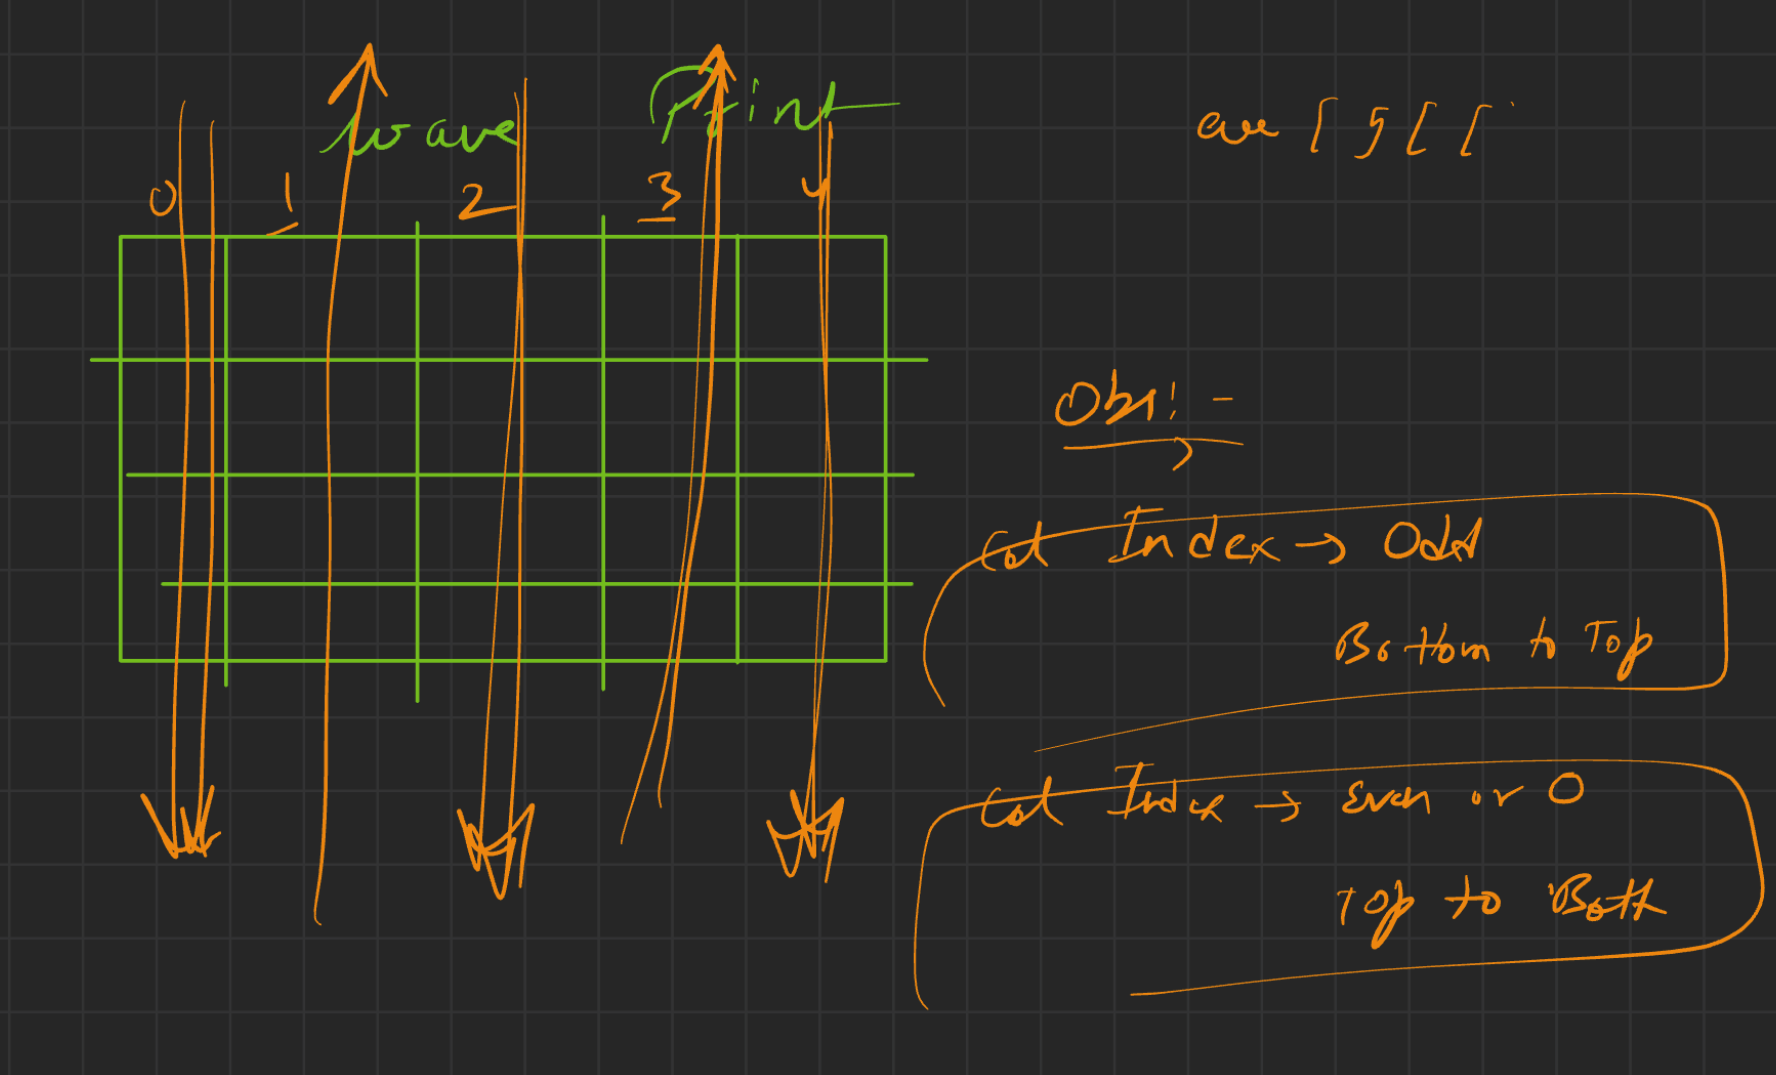 Wave Print
arr [ ] [ [
0 1 2 3 4
Obs: -
Col Index → Odd
Bottom to Top
Col Index → Even or 0
Top to Bott